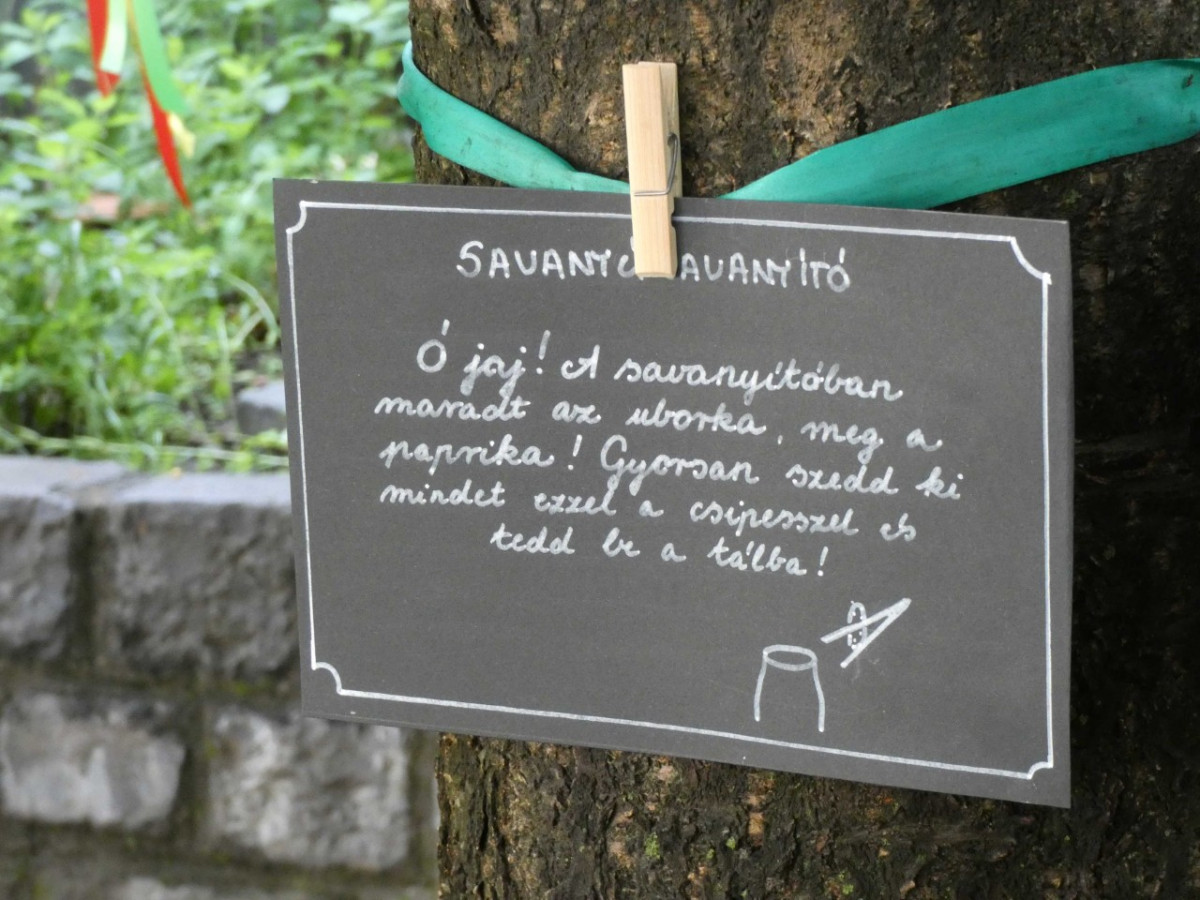 SAVANYÚ AVANYÍTÓ
Ó jaj! A savanyítóban
maradt az uborka, meg a
paprika! Gyorsan szedd ki
mindet ezzel a csipesszel és
tedd be a tálba!